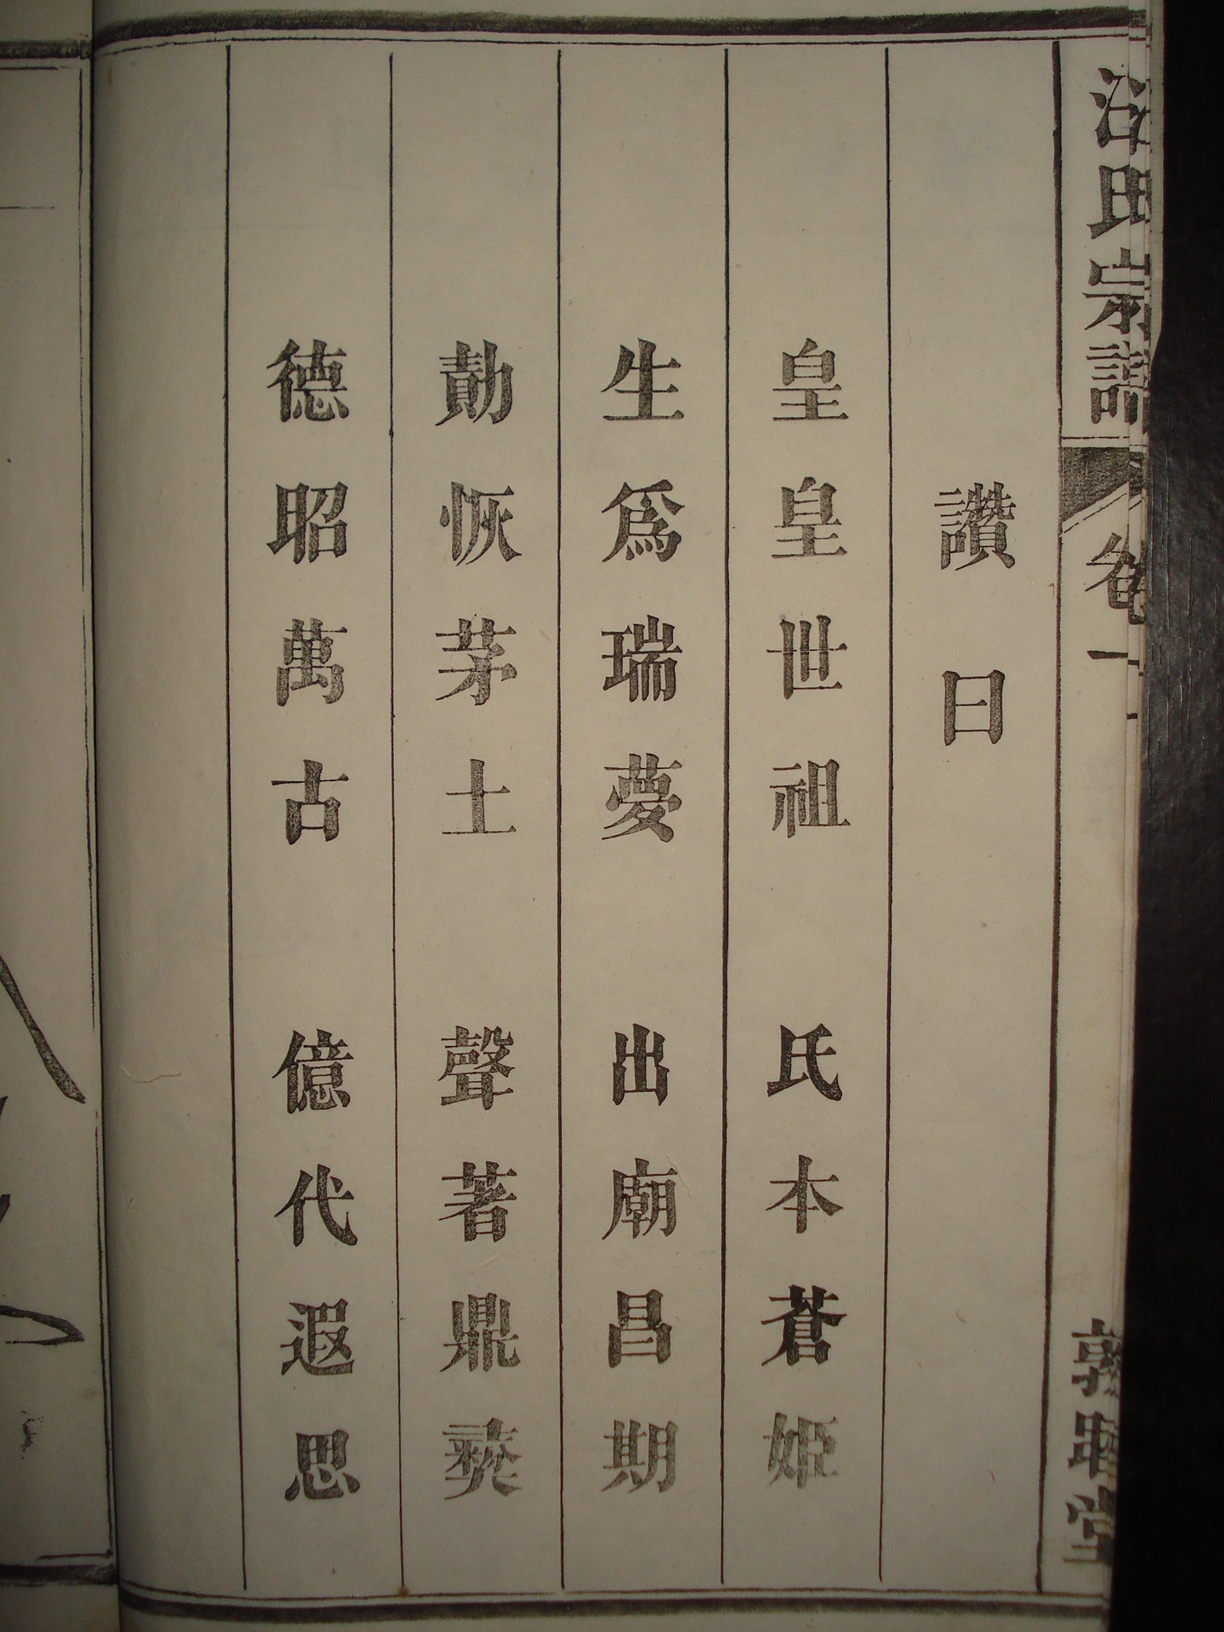 氏宗譜
卷一
敦睦堂
讚曰
皇皇世祖　氏本蒼姬
生爲瑞夢　出廟昌期
勣恢茅土　聲著鼎彛
德昭萬古　億代遐思